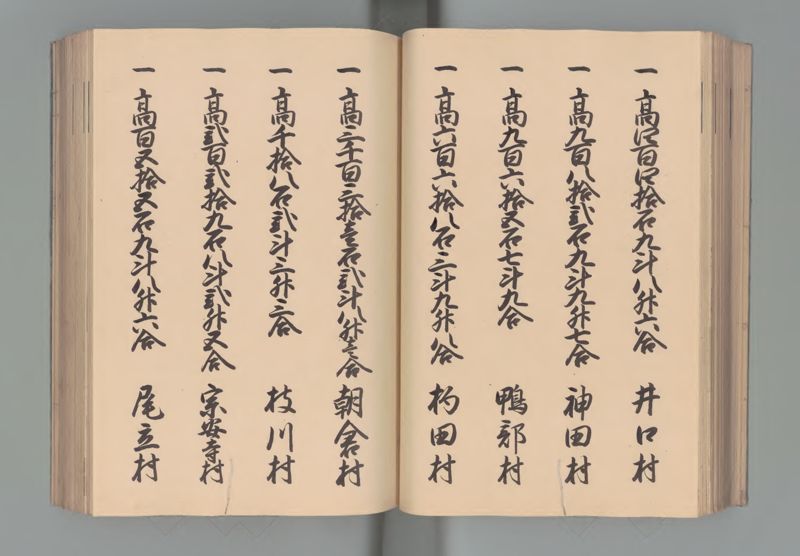 一 高四百四拾石九斗八升六合 井口村
一 高九百八拾弐石九斗九升七合 神田村
一 高九百六拾五石七斗九合 鴨部村
一 高六百六拾八石三斗九升八合 杓田村
一 高三千百三拾壱石弐斗八升壱合 朝倉村
一 高千拾八石弐斗三升三合 枝川村
一 高弐百弐拾九石八斗弐升五合 宗安寺村
一 高百五拾五石九斗八升六合 尾立村